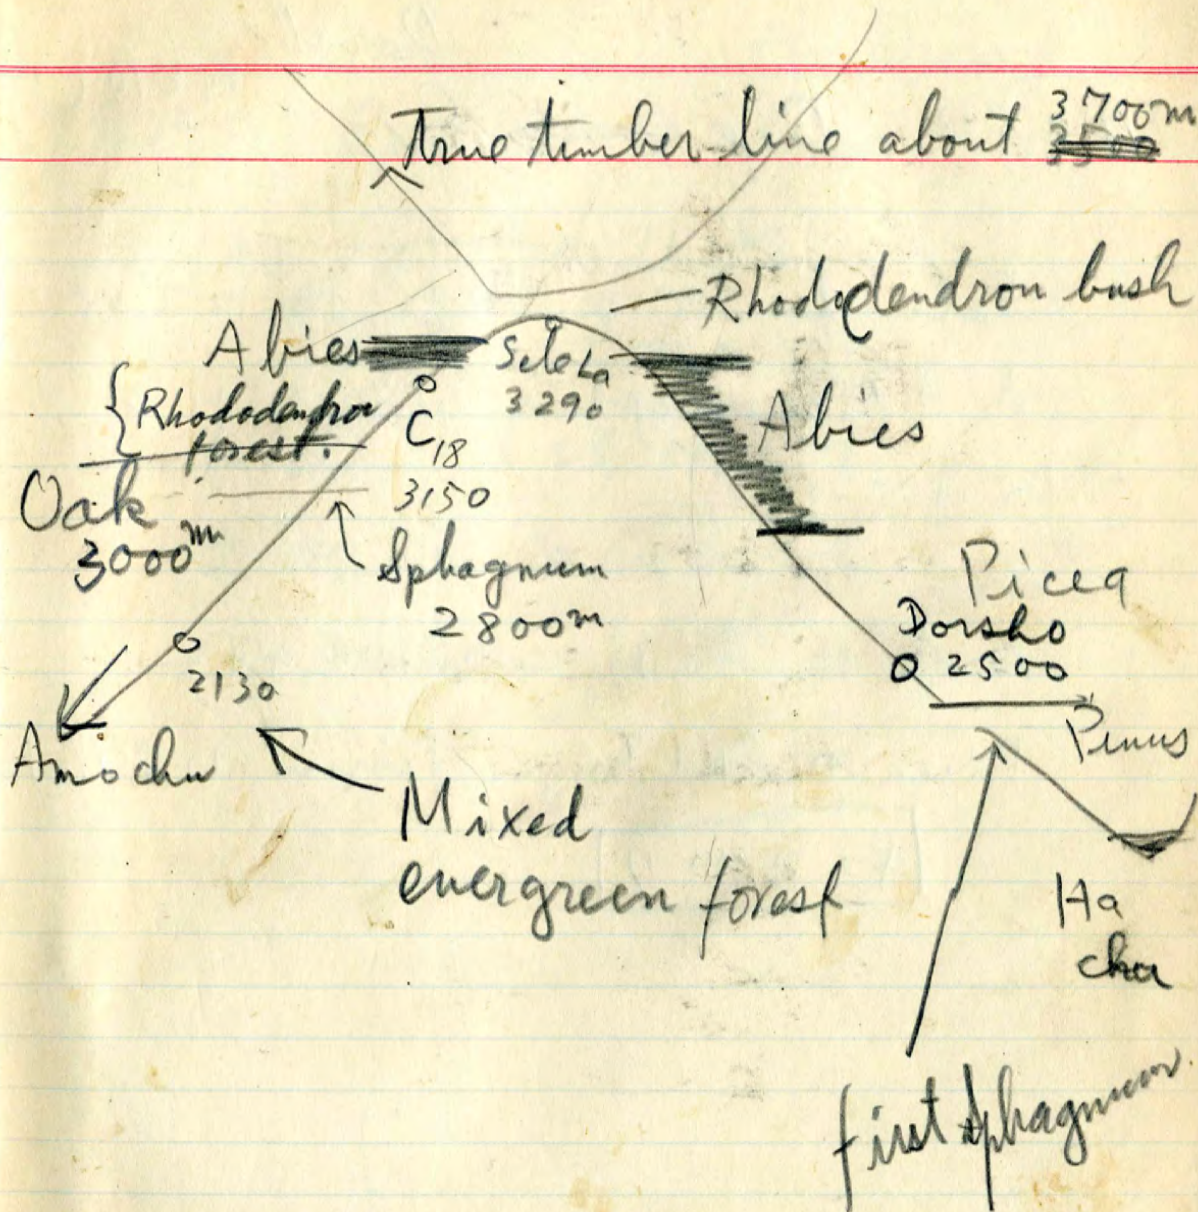 True timber-line about 3700m
3500
Rhododendron bush
Abies
Sele La
3290
{Rhododendron
forest.
Abies
C18
3150
Oak
3000m
Sphagnum
2800m
Picea
Dorsho
2500
2130
Pinus
Amo chu
Mixed
evergreen forest
Ha
chu
first sphagnum.